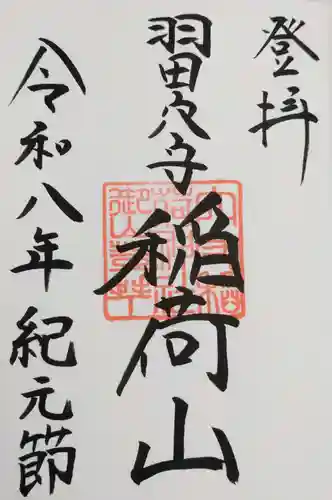 登拝
羽田穴守
稲荷山
令和八年紀元節